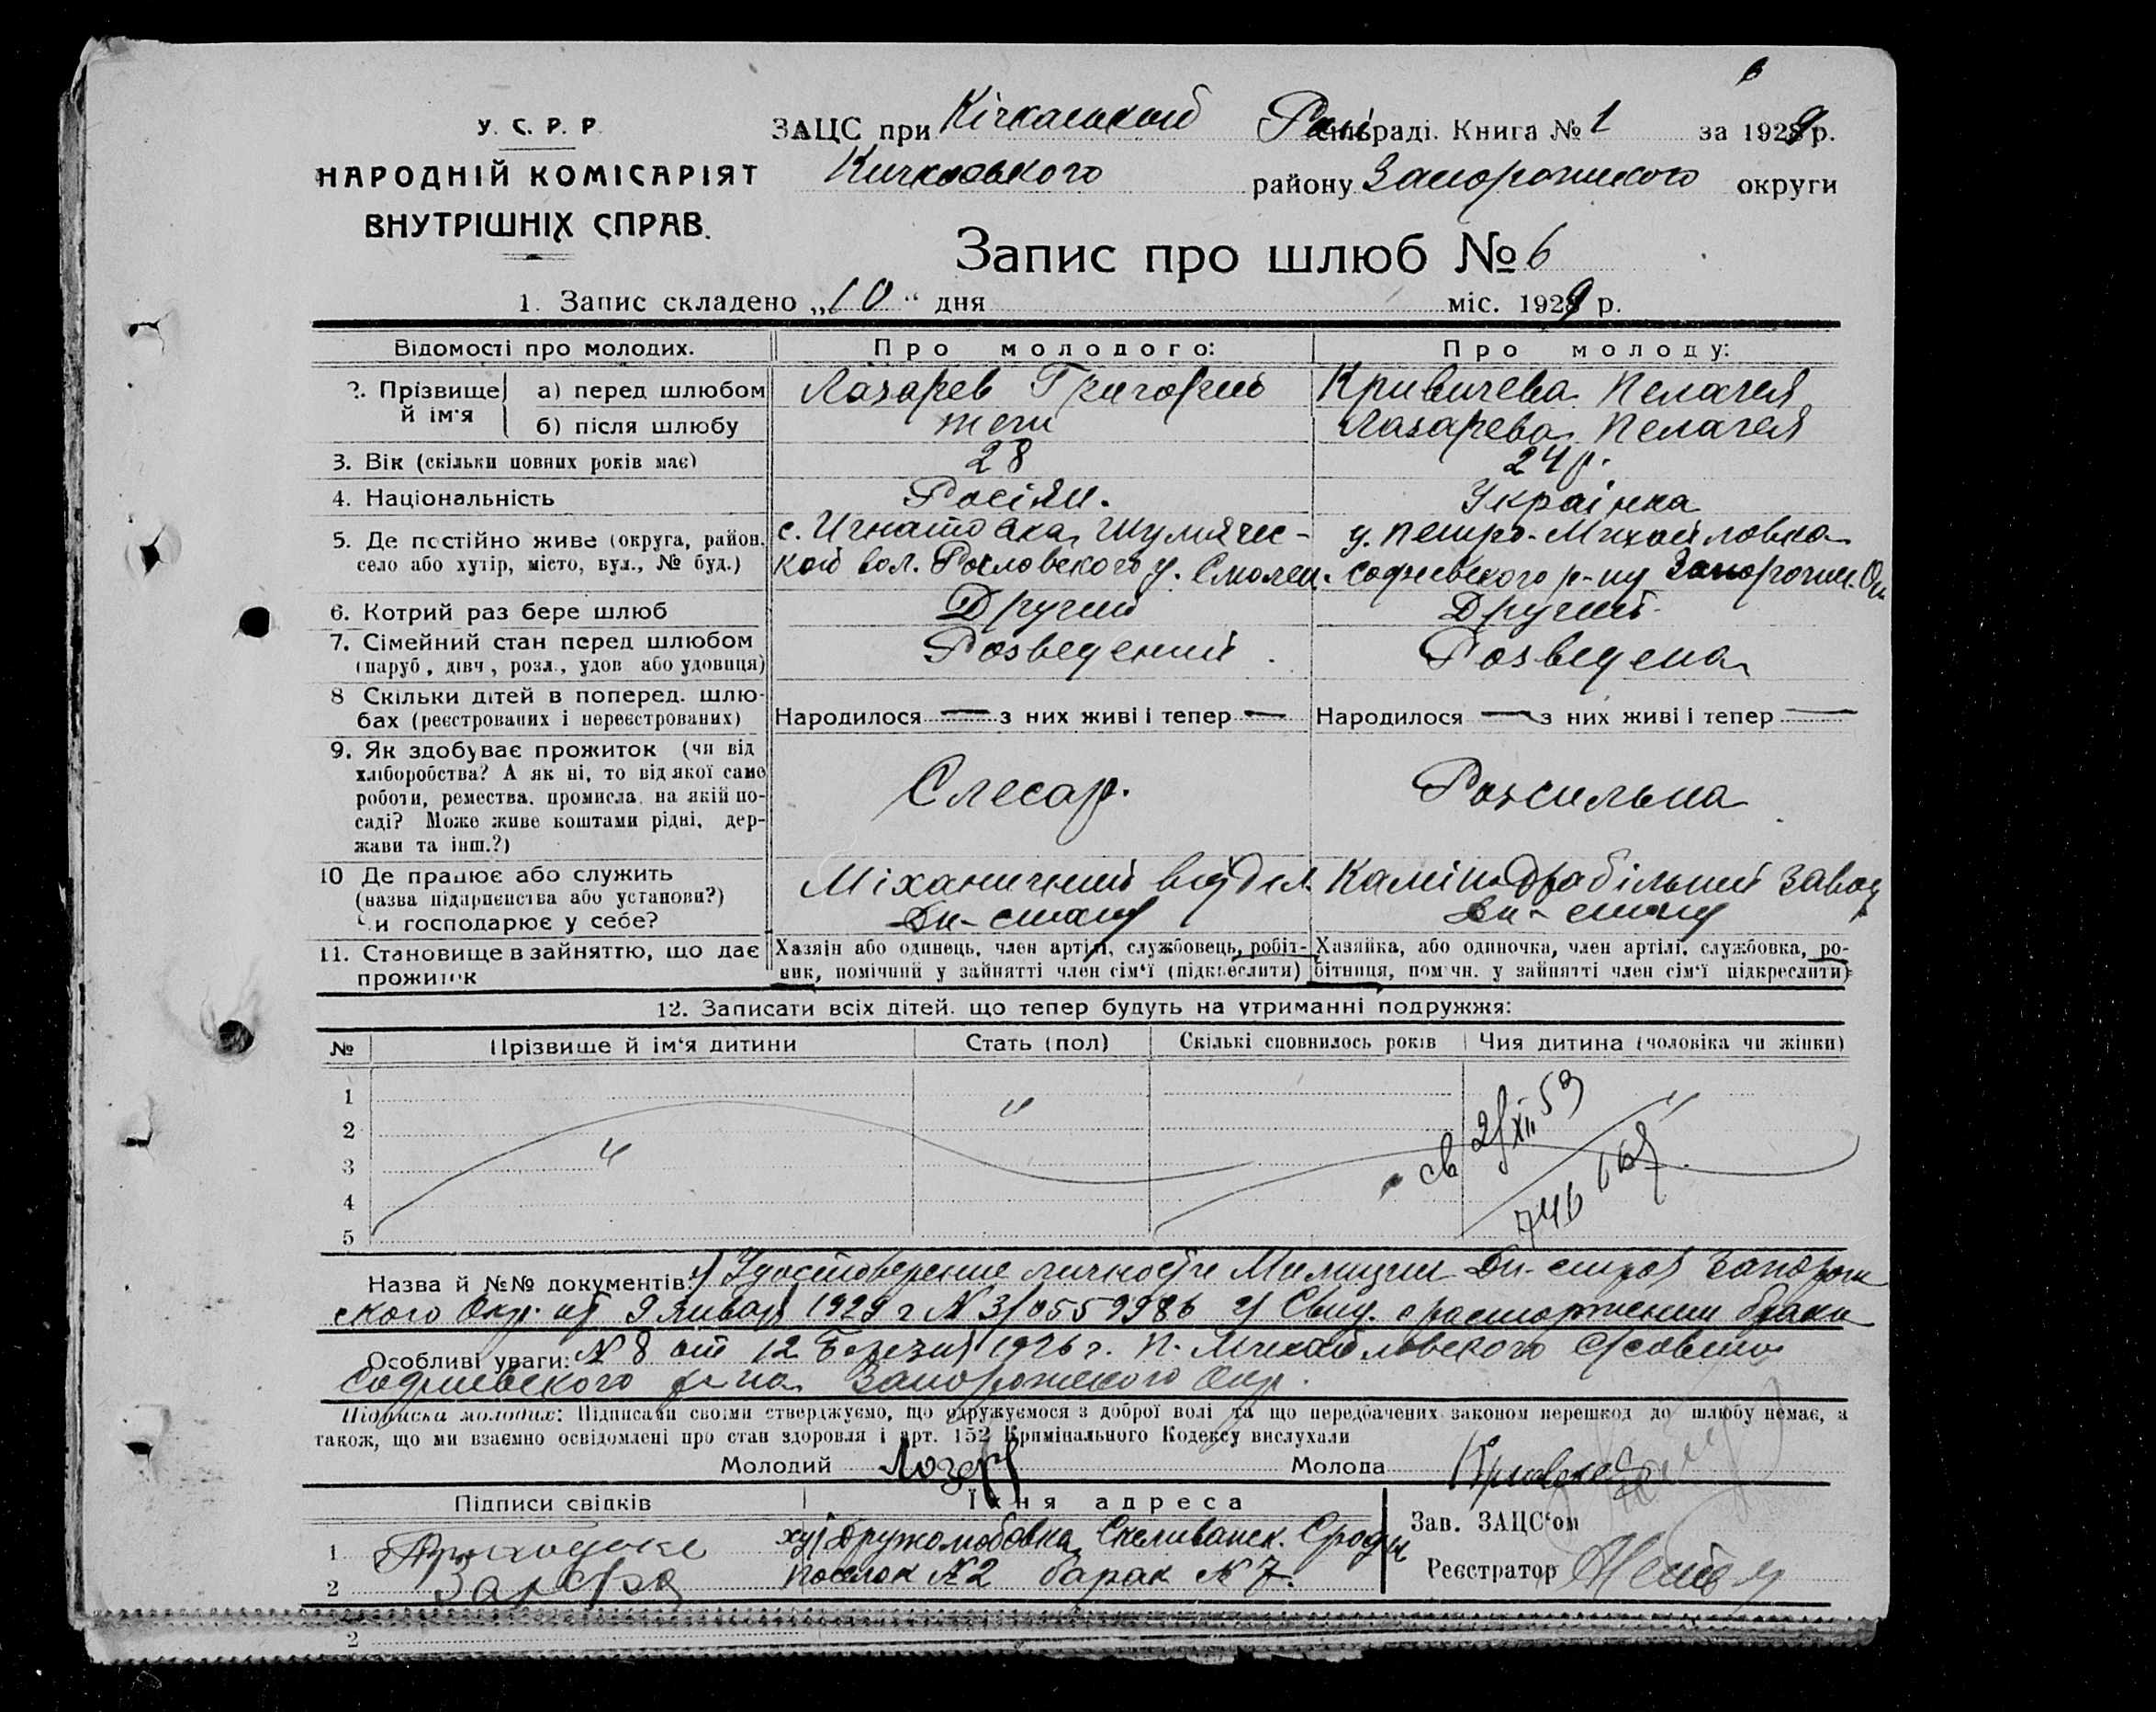 6
У. С. Р. Р.
НАРОДНІЙ КОМІСАРІЯТ
ВНУТРІШНІХ СПРАВ.
ЗАЦС при Кічкаськой раді. Книга № 1 за 1929 р.
Кичкаського району Запорожского округи
Запис про шлюб № 6
1. Запис складено „10“ дня міс. 1929 р.
Відомості про молодих. Про молодого: Про молоду:
2. Прізвище й ім'я а) перед шлюбом Лазарев Григорий Кривичева Пелагея
б) після шлюбу теж Лазарева Пелагея
3. Вік (скільки повних років має) 28 24 р.
4. Національність Росіян. Українка
5. Де постійно живе (округа, район, с. Игнатовка, Шумячес- у. Петро-Михайловка
село або хутір, місто, вул., № буд.) кой вол. Рославского у. Смолен. Софиевского р-ну Запорожск. Ок
6. Котрий раз бере шлюб Другий Другий
7. Сімейний стан перед шлюбом Розведений Розведена
(паруб., дівч., розл., удов. або удовиця)
8 Скільки дітей в поперед. шлю-
бах (реєстрованих і нереєстрованих) Народилося — з них живі і тепер — Народилося — з них живі і тепер —
9. Як здобуває прожиток (чи від
хліборобства? А як ні, то від якої саме
роботи, ремества, промисла, на якій по- Слесар. Розсильна
саді? Може живе коштами рідні, дер-
жави та інш.?)
10 Де працює або служить Міханичний відділ Каміндробільний завод
(назва підприємства або установи?) Дн-стану Дн-стану
Чи господарює у себе?
11. Становище в зайняттю, що дає прожиток Хазяїн або одинець, член артілі, службовець, робіт- Хазяйка, або одиночка, член артілі, службовка, ро-
ник, помічний у зайнятті член сім'ї (підкреслити) бітниця, помічн. у зайнятті член сім'ї підкреслити)
12. Записати всіх дітей, що тепер будуть на утриманні подружжя:
№ Прізвище й ім'я дитини Стать (пол) Скількі сповнилось років Чия дитина (чоловіка чи жінки)
1
2
3
4
5
св 2/XII 53
746
Назва й №№ документів: 1) Удостоверение личности Милиции Дн-строя Запорож
ского Окр. от 9 январ 1929 г № 31/0559986 2) Свид. о расторжении брака
Особливі уваги: № 8 от 12 Березня 1926 г. П. Михайловского С/совета
Софиевского р-на Запорожского Окр.
Підписка молодих: Підписами своїми стверджуємо, що одружуємося з доброї волі та що передбачених законом перешкод до шлюбу немає, а
також, що ми взаємно освідомлені про стан здоровля і арт. 152 Кримінального Кодексу вислухали
Молодий Молода
Підписи свідків Їхня адреса Зав. ЗАЦС'ом
1 хут Дружолюбовка
2 поселок № 2 барак № 7. Реєстратор
2